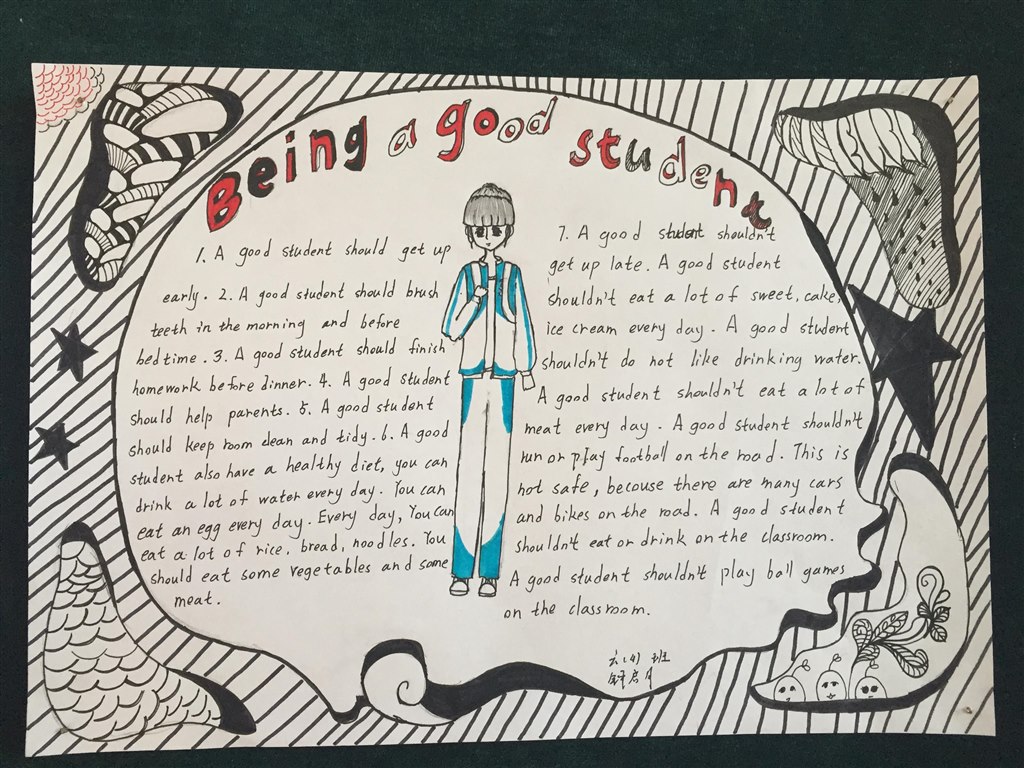 Being a good student
1. A good student should get up
early. 2. A good student should brush
teeth in the morning and before
bedtime. 3. A good student should finish
homework before dinner. 4. A good student
should help parents. 5. A good student
should keep room clean and tidy. 6. A good
student also have a healthy diet, you can
drink a lot of water every day. You can
eat an egg every day. Every day, You can
eat a lot of rice, bread, noodles. You
should eat some vegetables and some
meat.
7. A good student shouldn't
get up late. A good student
shouldn't eat a lot of sweet, cake,
ice cream every day. A good student
shouldn't do not like drinking water.
A good student shouldn't eat a lot of
meat every day. A good student shouldn't
run or play football on the road. This is
not safe, becouse there are many cars
and bikes on the road. A good student
shouldn't eat or drink on the classroom.
A good student shouldn't play ball games
on the classroom.
六(4) 班